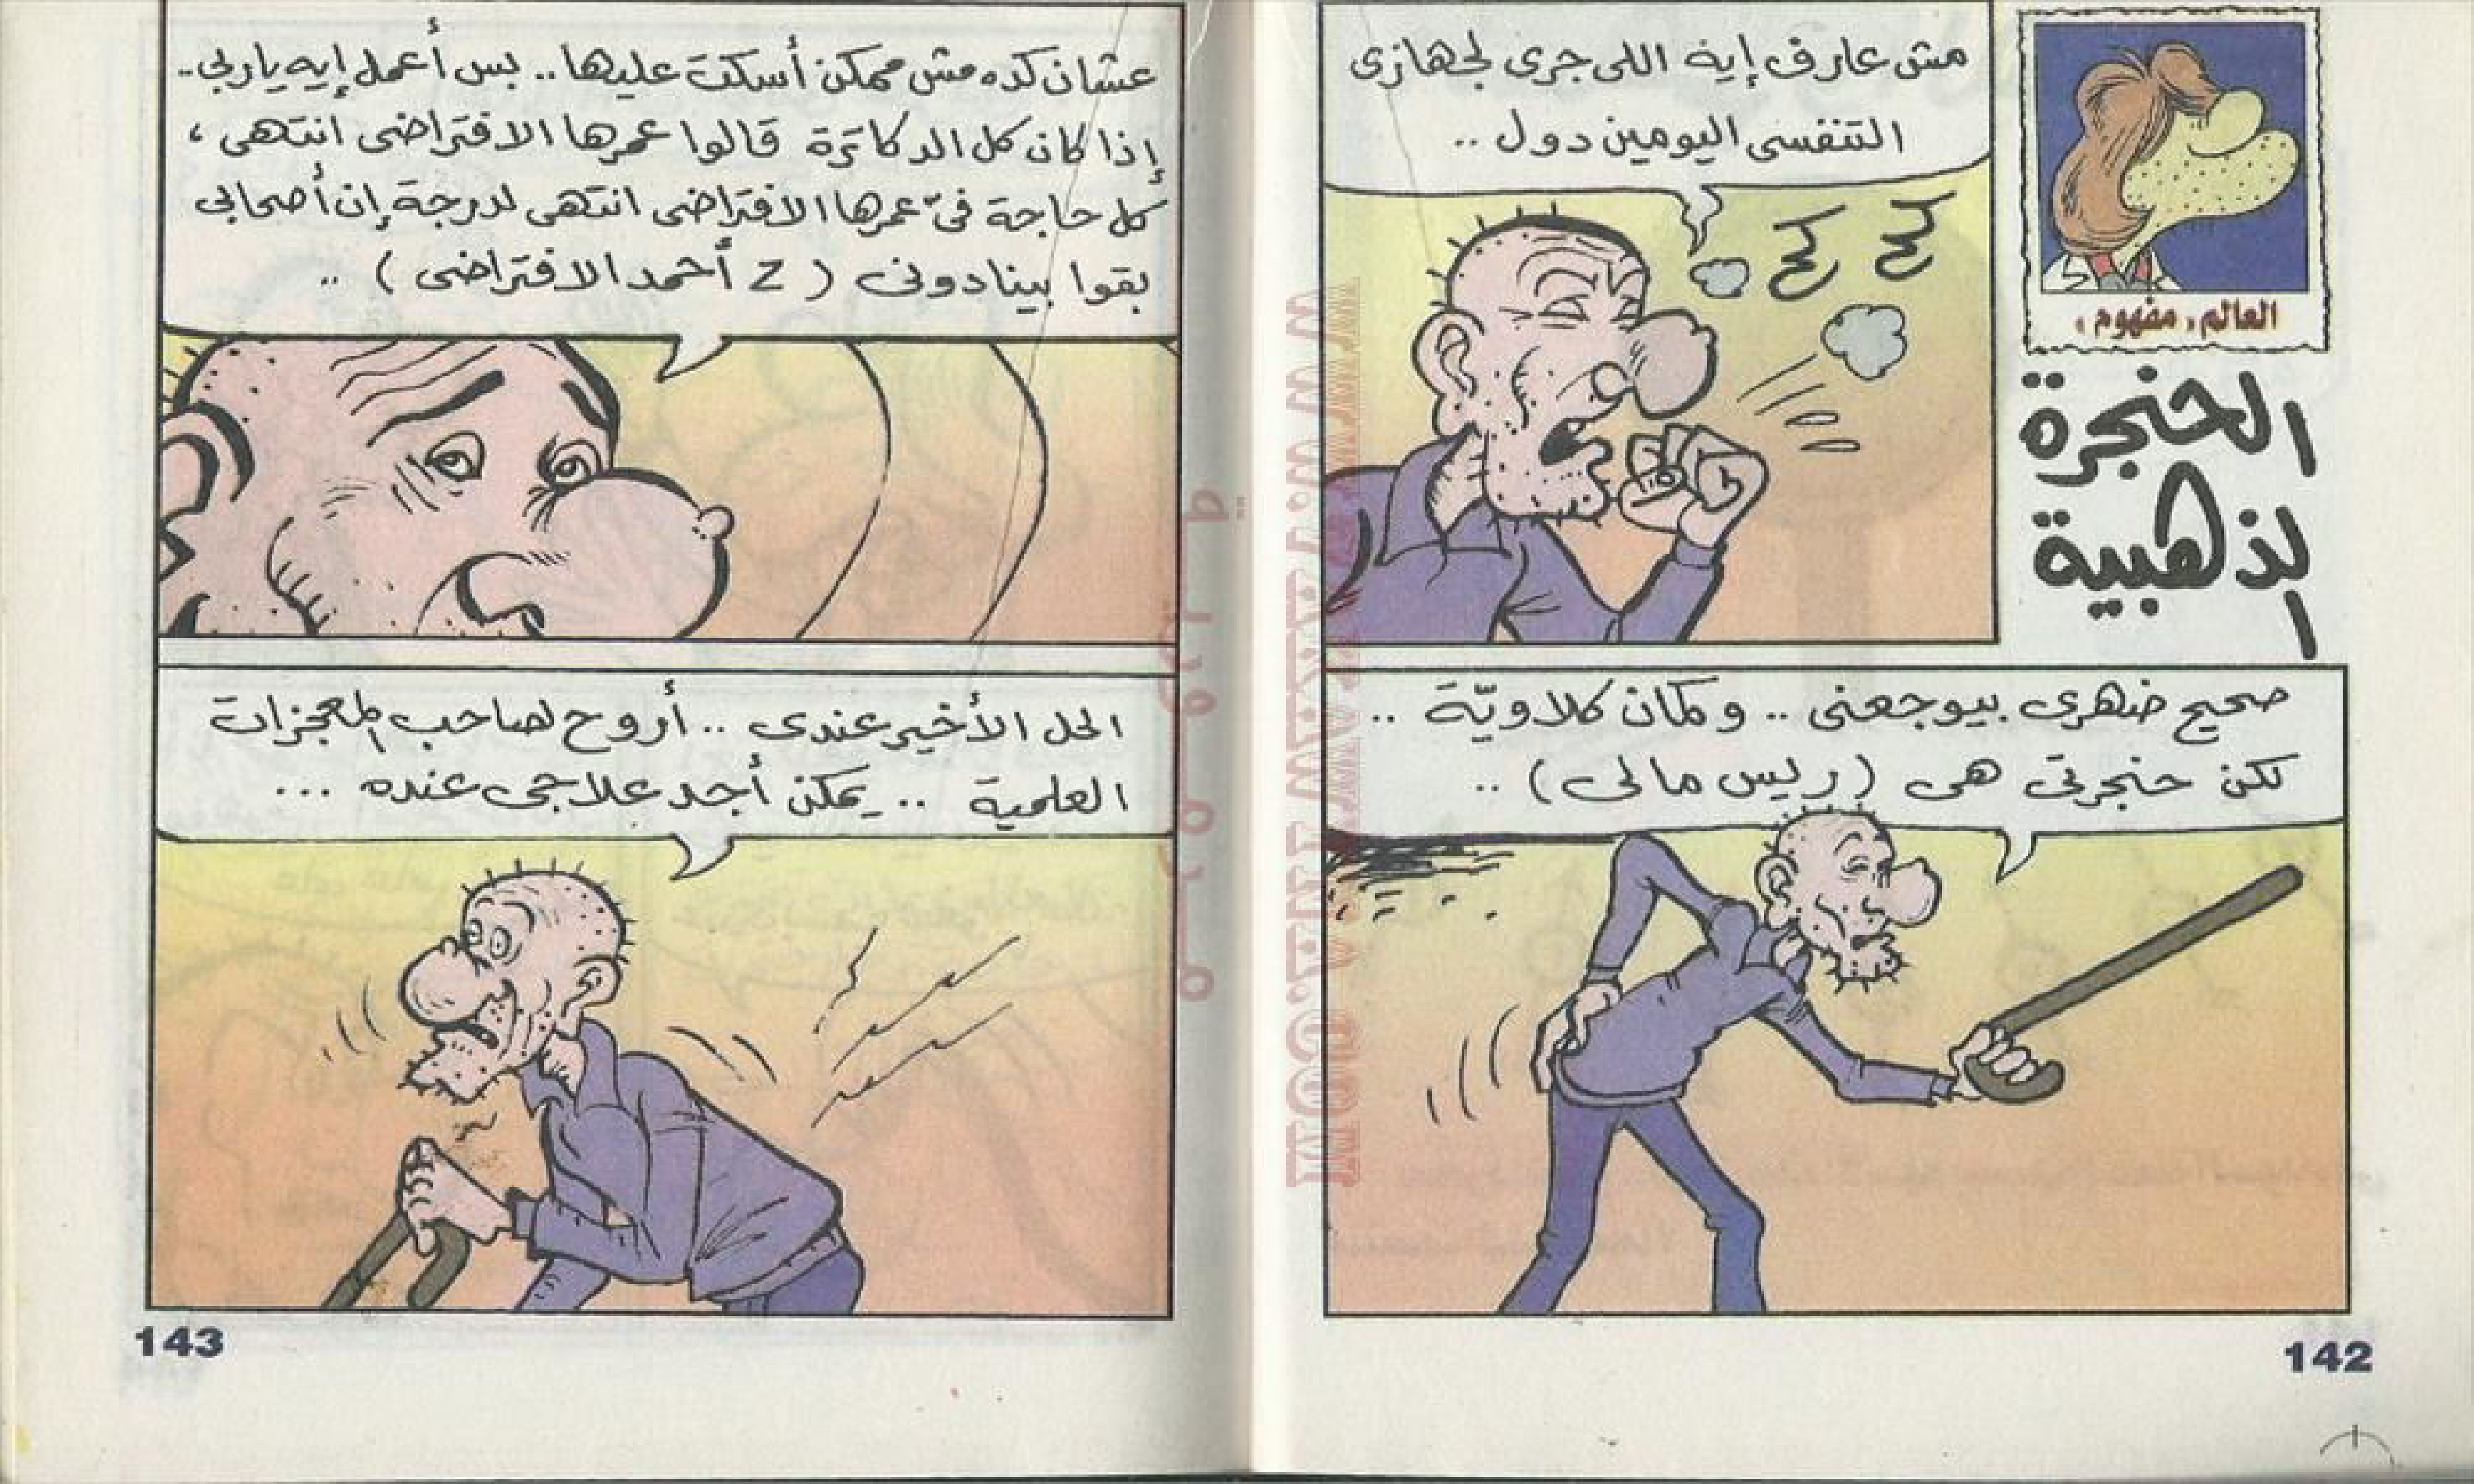 العالم «مفهوم»
الحنجرة
الذهبية
مش عارف إيه اللى جرى لجهازى
التنفسى اليومين دول ..
كح كح
صحيح ضهرى بيوجعنى .. وكمان كلاويّة ..
لكن حنجرتى هى (ريس مالى) ..
142
عشان كده مش ممكن أسكت عليها .. بس أعمل إيه ياربى ..
إذا كان كل الدكاترة قالوا عمرها الافتراضى انتهى ،
كل حاجة فىّ عمرها الافتراضى انتهى لدرجة إن أصحابى
بقوا بينادونى ( z أحمد الافتراضى ) ..
الحل الأخير عندى .. أروح لصاحب المعجزات
العلمية .. يمكن أجد علاجى عنده ...
143